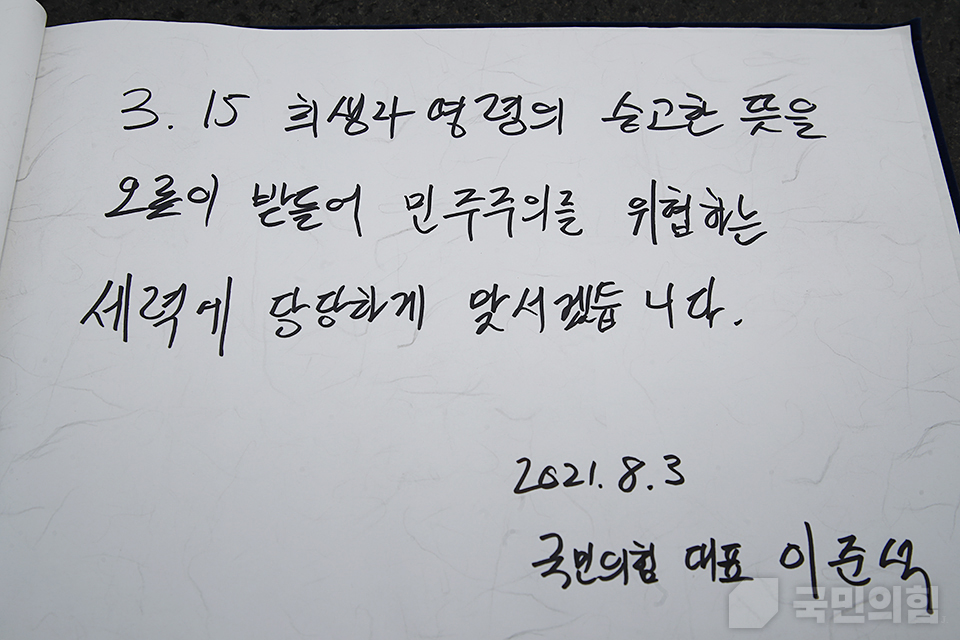 3.15 희생자 영령의 숭고한 뜻을
오롯이 받들어 민주주의를 위협하는
세력에 당당하게 맞서겠습니다.
2021.8.3
국민의힘 대표 이준석
국민의힘